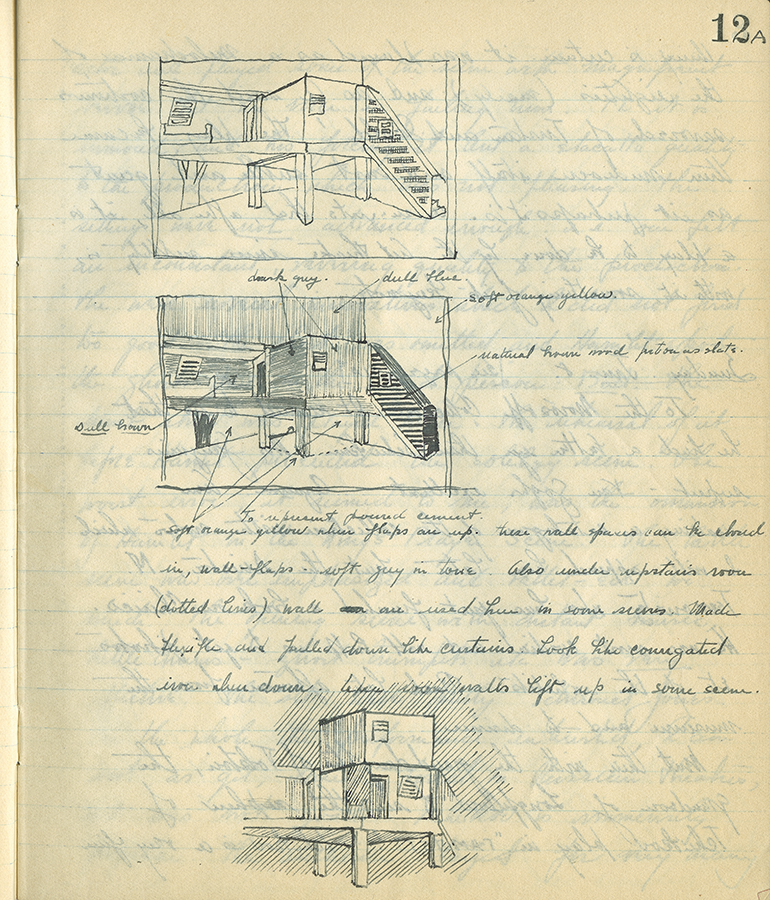 12A
dark grey.
dull blue.
soft orange yellow.
natural brown wood put on as slats.
Dull brown
To represent poured cement.
Soft orange yellow when flaps are up. These wall spaces can be closed
in, wall-flaps - soft grey in tone. Also under upstairs room
(dotted lines) wall are used here in some scenes. Made
flexible and pulled down like curtains. Look like corrugated
iron when down. walls lift up in some scene.